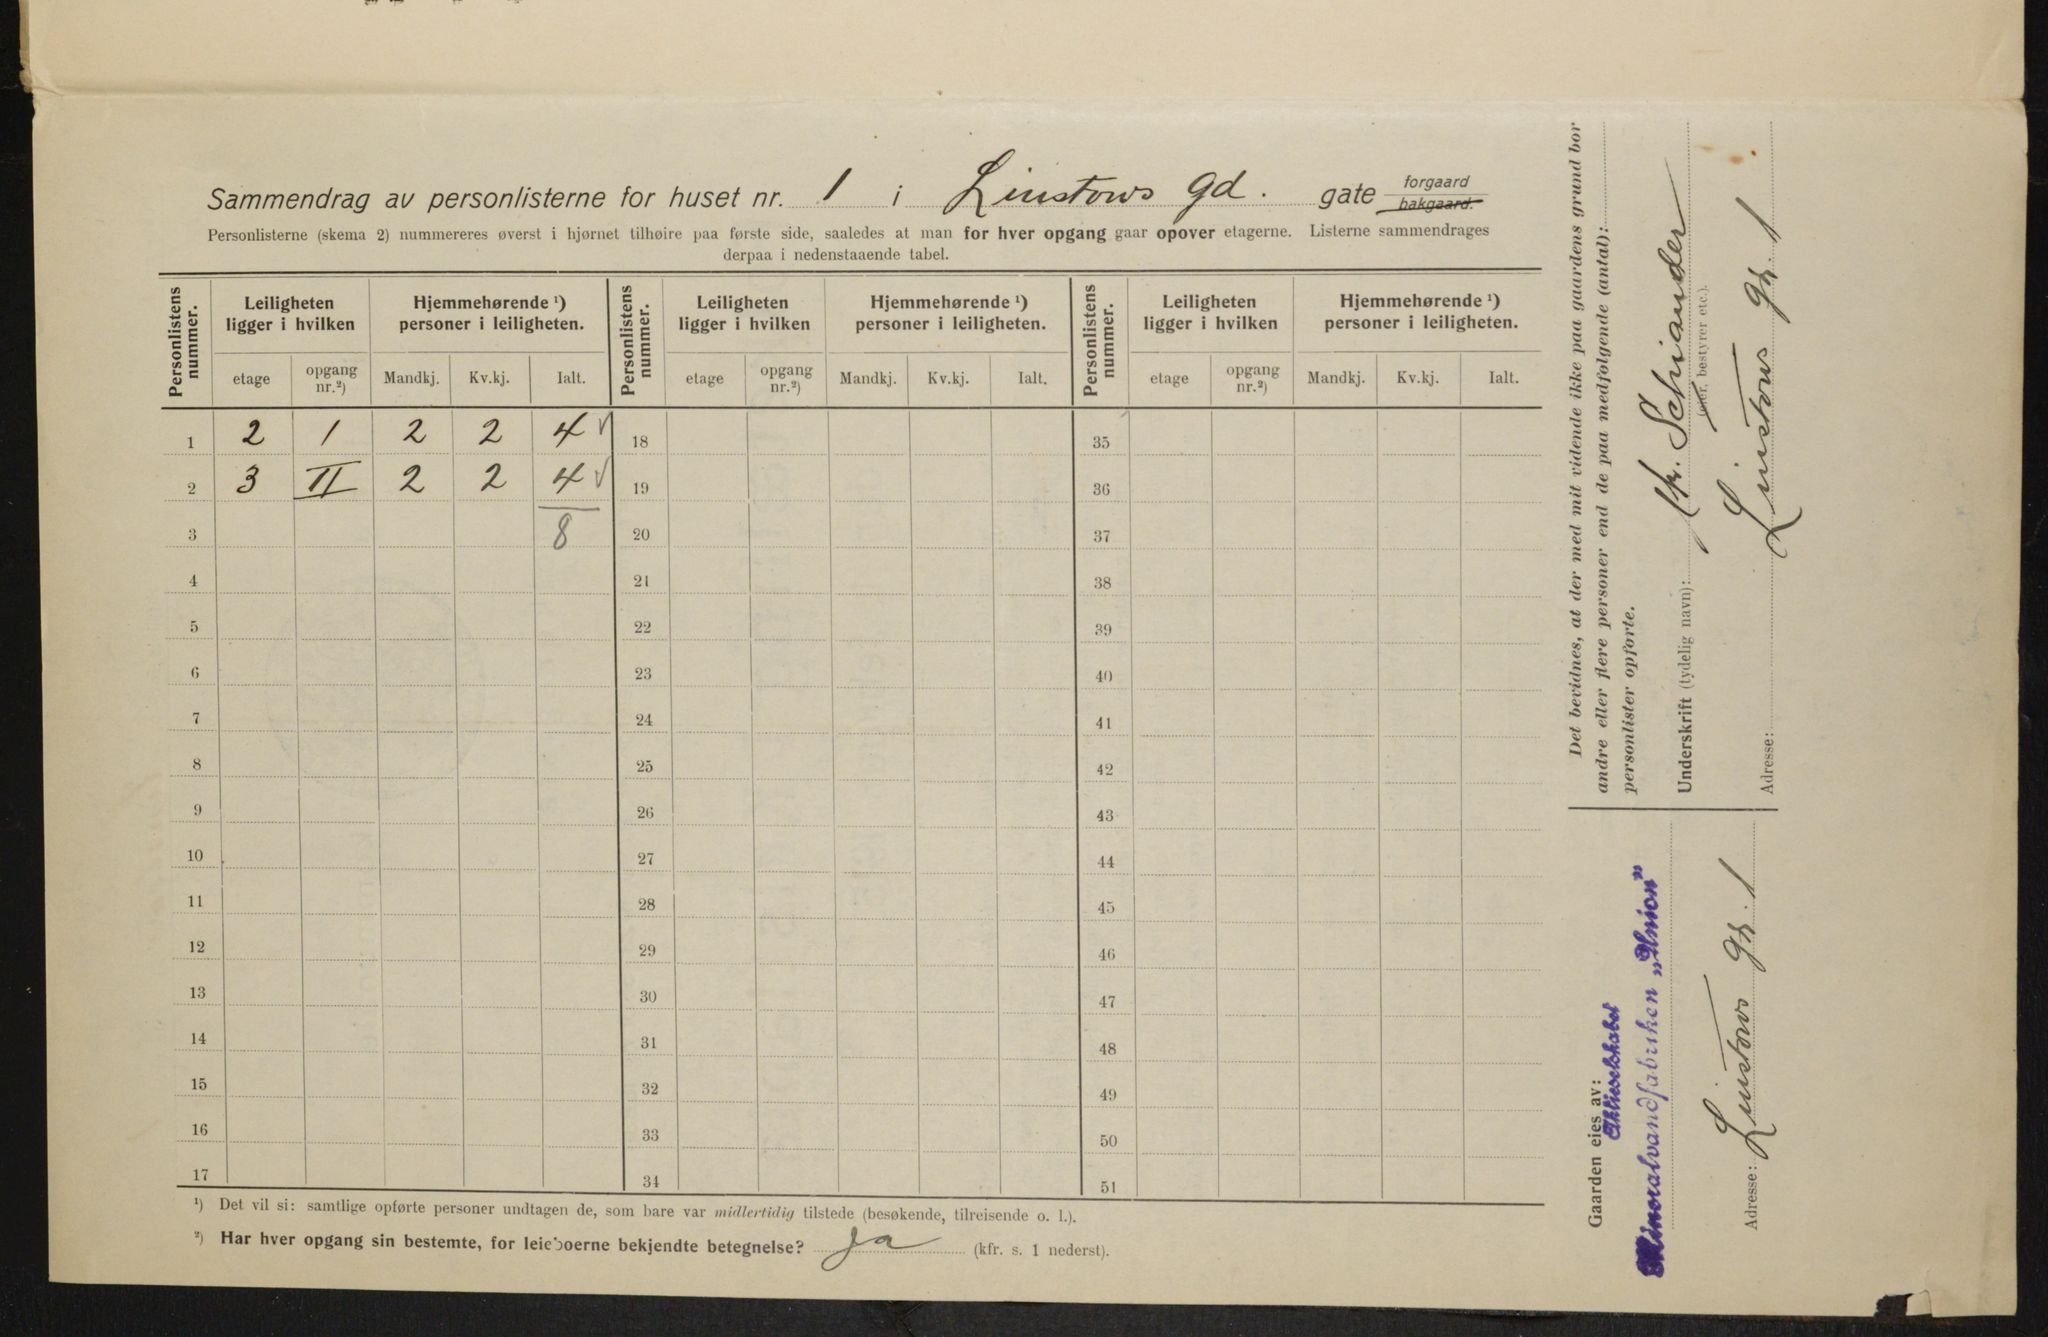 Sammendrag av personlisterne for huset nr. 1 i Linstows gd. gate forgaard bakgaard.
Personlisterne (skema 2) nummereres øverst i hjørnet tilhøire paa første side, saaledes at man for hver opgang gaar opover etagerne. Listerne sammendrages
derpaa i nedenstaaende tabel.
Personlistens nummer. Leiligheten ligger i hvilken Hjemmehørende ¹) personer i leiligheten. Personlistens nummer. Leiligheten ligger i hvilken Hjemmehørende ¹) personer i leiligheten. Personlistens nummer. Leiligheten ligger i hvilken Hjemmehørende ¹) personer i leiligheten.
etage opgang nr.²) Mandkj. Kv.kj. Ialt. etage opgang nr.²) Mandkj. Kv.kj. Ialt. etage opgang nr.²) Mandkj. Kv.kj. Ialt.
1 2 1 2 2 4 18 35
2 3 II 2 2 4 19 36
3 8 20 37
4 21 38
5 22 39
6 23 40
7 24 41
8 25 42
9 26 43
10 27 44
11 28 45
12 29 46
13 30 47
14 31 48
15 32 49
16 33 50
17 34 51
¹) Det vil si: samtlige opførte personer undtagen de, som bare var midlertidig tilstede (besøkende, tilreisende o. l.).
²) Har hver opgang sin bestemte, for leieboerne bekjendte betegnelse? Ja (kfr. s. 1 nederst).
Det bevidnes, at der med mit vidende ikke paa gaardens grund bor
andre eller flere personer end de paa medfølgende (antal):
personlister opførte.
Underskrift (tydelig navn): Schiander
(eier, bestyrer etc.).
Adresse: Linstows gt. 1
Gaarden eies av:
Aktieselskabet
Mineralvandfabriken „Union"
Adresse: Linstows gt. 1